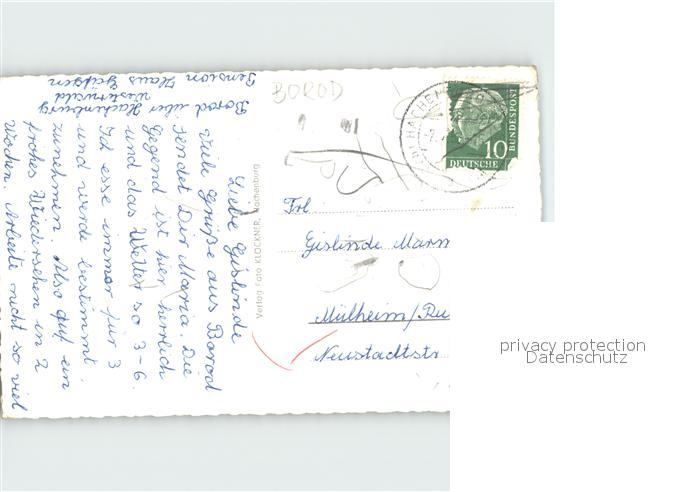 Borod über Hachenburg
Westerwald
Pension Haus
Liebe Gislinde
Viele Grüße aus Borod
sendet Dir Maria. Die
Gegend ist hier herrlich
und das Wetter so 3-6.
Ich esse immer für 3
und werde bestimmt
zunehmen. Also auf ein
frohes Wiedersehen in 2
Wochen. Arbeite nicht so viel
Verlag Foto KLÖCKNER, Hachenburg
BOROD
HACHENB
10
DEUTSCHE
BUNDESPOST
Frl.
Gislinde Marm
Mülheim/Ru
Neustadtstr
privacy protection
Datenschutz